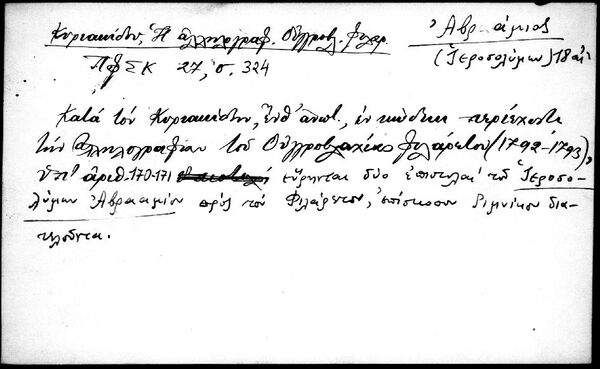 Κυριακίδου, Ἡ ἀλληλογραφ. Οὑγγροβλ. Φιλαρ.
ΠΦΣΚ 27, σ. 324
Ἀβραάμιος
(Ἱεροσολύμων) 18 αἰ
Κατὰ τὸν Κυριακίδην, ἔνθ' ἀνωτ., ἐν κώδικι περιέχοντι
τὴν ἀλληλογραφίαν τοῦ Οὑγγροβλαχίας Φιλαρέτου (1792-1793),
ὑπ' ἀριθ. 170-171 εὕρηνται δύο ἐπιστολαὶ τοῦ Ἱεροσο-
λύμων Ἀβρααμίου πρὸς τὸν Φιλάρετον, ἐπίσκοπον Ριμνίκου δια-
τελοῦντα.